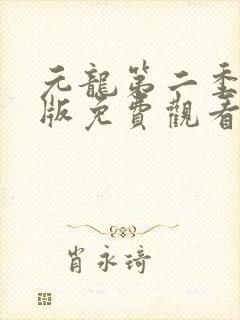 元龍第二季
版免費觀看
肖永琦